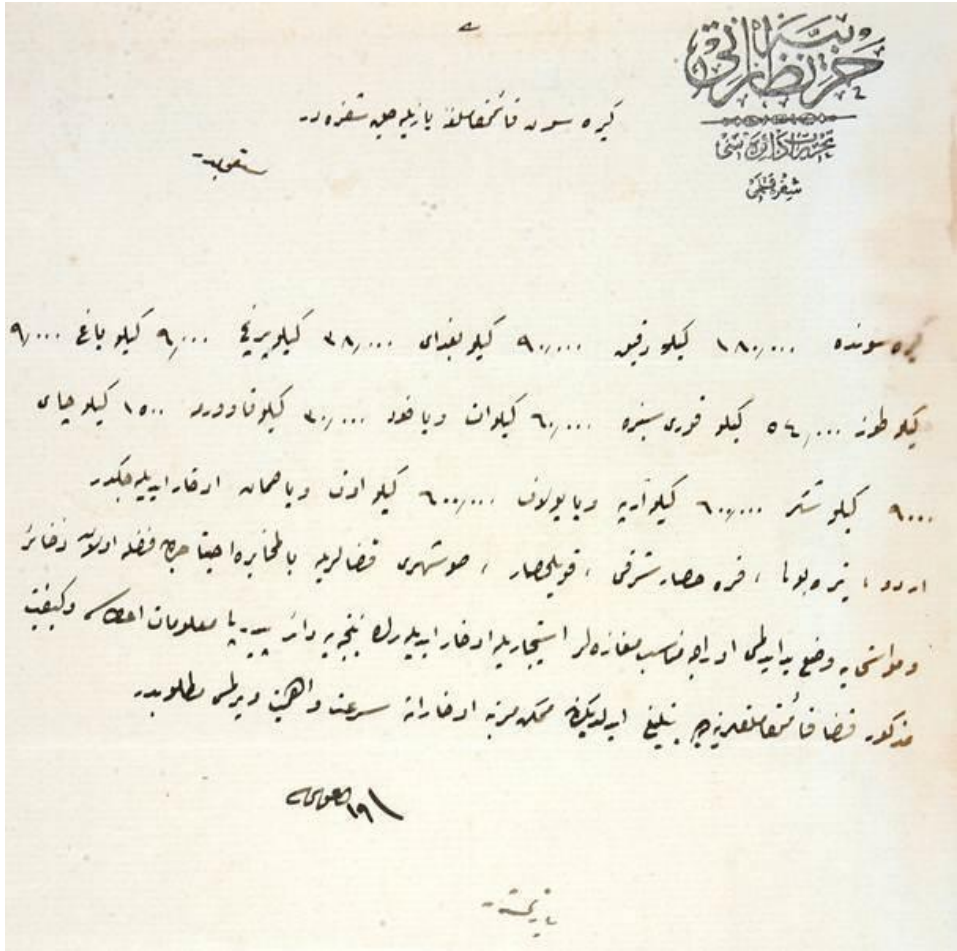 حربیه نظارتی
تحریرات دائره سی
شفره قلمی
کیره سون قائمقاملغنه یازیله جق شفره در
کیره سونده ١٨٠,٠٠٠ کیلو دقیق ٩٠,٠٠٠ کیلو بغدای ٣٨,٠٠٠ کیلو پرنج ٩,٠٠٠ کیلو یاغ ٩,٠٠٠
کیلو طوز ٥٤,٠٠٠ کیلو قوری سبزه ٦٠,٠٠٠ کیلو ات ویاخود ٣٠,٠٠٠ کیلو قاوورمه ١٥٠٠ کیلو چای
٩٠٠٠ کیلو شکر ٦٠٠,٠٠٠ کیلو آرپه ویا یولاف ٦٠٠,٠٠٠ کیلو اوت ویا صمان ادخار ایدیله جکدر
اردو ، تیره بولی ، قره حصار شرقی ، قویلحصار ، صوشهری قضالریله بالمخابره احتیاجدن فضله اولان ذخائر
و مواشی یه وضع ید ایدلمسی اوراجه مناسب مغازه لر استیجاریله ادخار ایدیله رک نتیجه یه دائر پیدرپی معلومات اعطاسی و کیفیت
مذکور قضا قائمقاملقلرینه ده تبلیغ ایدلدیکندن ممکن مرتبه ادخاراته سرعت و اهمیت ویرلمسی مطلوبدر
١٩
یازلمشدر